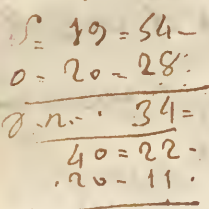 19 = 54 -
0 = 20 = 28
34 =
40 = 22 -
20 - 11